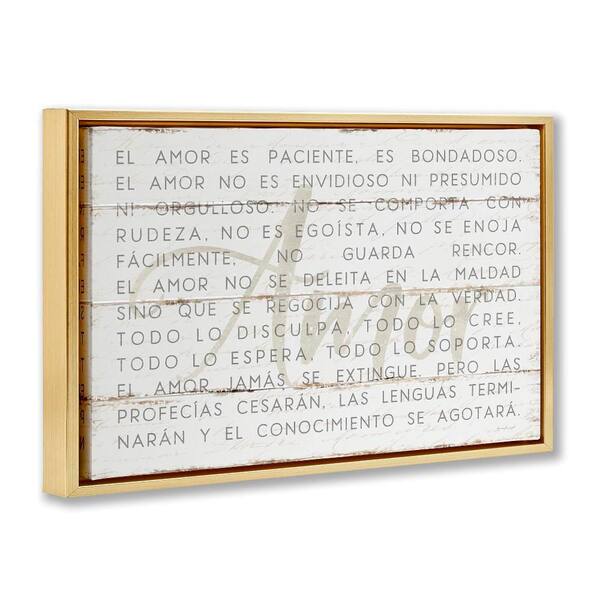 EL AMOR ES PACIENTE, ES BONDADOSO.
EL AMOR NO ES ENVIDIOSO NI PRESUMIDO
NI ORGULLOSO. NO SE COMPORTA CON
RUDEZA, NO ES EGOÍSTA, NO SE ENOJA
FÁCILMENTE, NO GUARDA RENCOR.
EL AMOR NO SE DELEITA EN LA MALDAD
SINO QUE SE REGOCIJA CON LA VERDAD.
TODO LO DISCULPA, TODO LO CREE,
TODO LO ESPERA, TODO LO SOPORTA.
EL AMOR JAMÁS SE EXTINGUE, PERO LAS
PROFECÍAS CESARÁN, LAS LENGUAS TERMI-
NARÁN Y EL CONOCIMIENTO SE AGOTARÁ.
Amor